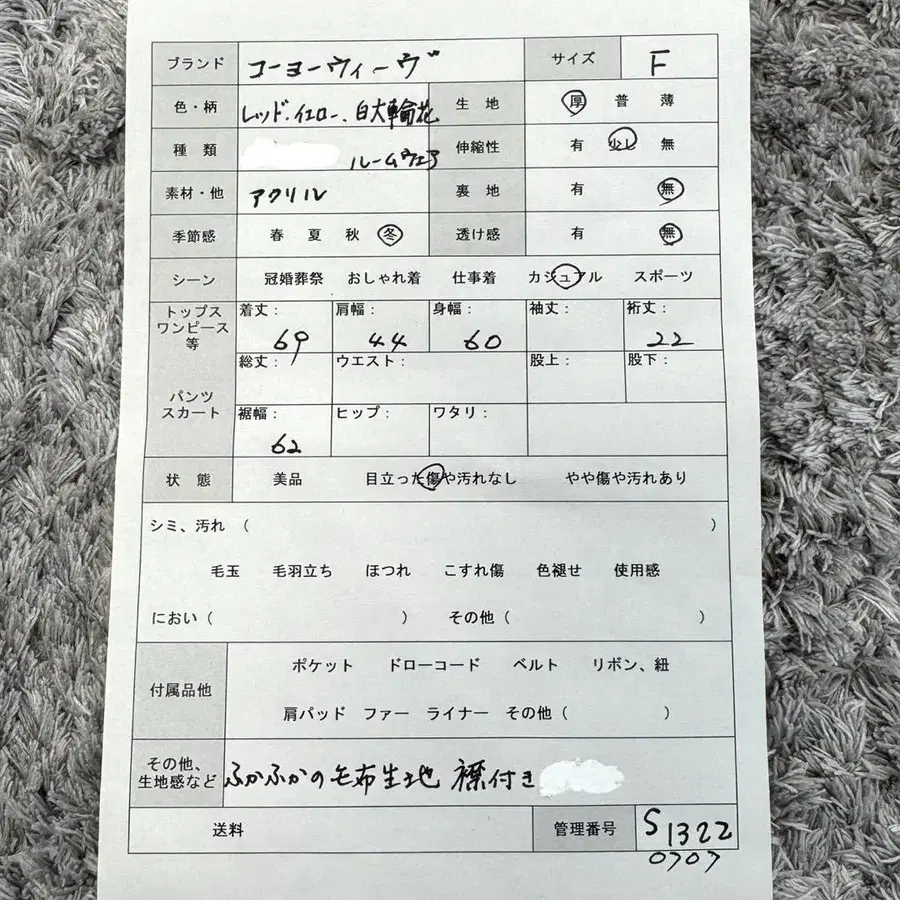 ブランド コーヨーウィーヴ サイズ F
色・柄 レッド.イエロー、白大輪花 生地 厚 普 薄
種類 ルームウェア 伸縮性 有 少し 無
素材・他 アクリル 裏地 有 無
季節感 春 夏 秋 冬 透け感 有 無
シーン 冠婚葬祭 おしゃれ着 仕事着 カジュアル スポーツ
トップス
ワンピース
等
着丈: 肩幅: 身幅: 袖丈: 裄丈:
69 44 60 22
総丈: ウエスト: 股上: 股下:
パンツ
スカート
裾幅: ヒップ: ワタリ:
62
状態 美品 目立った傷や汚れなし やや傷や汚れあり
シミ、汚れ ( )
毛玉 毛羽立ち ほつれ こすれ傷 色褪せ 使用感
におい ( ) その他 ( )
付属品他
ポケット ドローコード ベルト リボン、紐
肩パッド ファー ライナー その他 ( )
その他、
生地感など
ふかふかの毛布生地 襟付き
送料 管理番号 S1322
0707